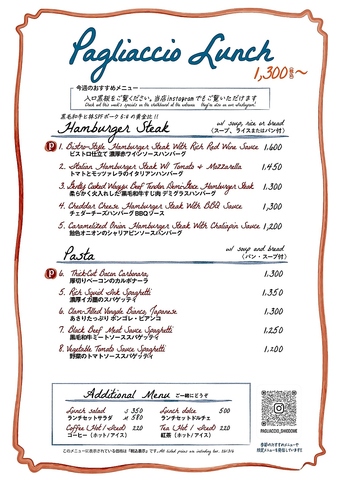 Pagliaccio Lunch
1,300 税込 〜
今週のおすすめメニュー
入口黒板をご覧ください。当店instagramでもご覧いただけます
Check out this week's specials on the chalkboard at the entrance. They're also on our instagram!
黒毛和牛と林SPFポーク 6:4 の黄金比!!
Hamburger Steak
w/ soup, rice or bread
(スープ、ライスまたはパン付)
P
1. Bistro-Style Hamburger Steak With Rich Red Wine Sauce 1,600
ビストロ仕立て 濃厚赤ワインソースハンバーグ
2. Italian Hamburger Steak W/ Tomato & Mozzarella 1,450
トマトとモッツァレラのイタリアンハンバーグ
3. Slowly Cooked Wagyu Beef Tendon Demi-Glace Hamburger Steak 1,300
柔らかく火入れした黒毛和牛すじ肉 デミグラスハンバーグ
4. Cheddar Cheese Hamburger Steak With BBQ Sauce 1,300
チェダーチーズハンバーグ BBQソース
5. Caramelized Onion Hamburger Steak With Chaliapin Sauce 1,200
飴色オニオンのシャリアピンソースハンバーグ
Pasta
w/ soup and bread
(パン・スープ付)
P
6. Thick-Cut Bacon Carbonara, 1,300
厚切りベーコンのカルボナーラ
5. Rich Squid Ink Spaghetti 1,350
濃厚イカ墨のスパゲッティ
6. Clam-Filled Vongole Bianco, Japanese 1,300
あさりたっぷり ボンゴレ・ビアンコ
7. Black Beef Meat Sauce Spaghetti 1,250
黒毛和牛ミートソーススパゲッティ
8. Vegetable Tomato Sauce Spaghetti 1,200
野菜のトマトソーススパゲッティ
Additional Menu ご一緒にどうぞ
Lunch salad S 350
ランチセットサラダ M 580
Lunch dolce 500
ランチセットドルチェ
Coffee (Hot / Iced) 220
コーヒー (ホット/アイス)
Tea (Hot / Iced) 220
紅茶 (ホット/アイス)
PAGLIACCIO_GINGOCHE
季節のおすすめメニューや
限定メニューを発信しています!
このメニューに表示されている価格は「税込表示」です。